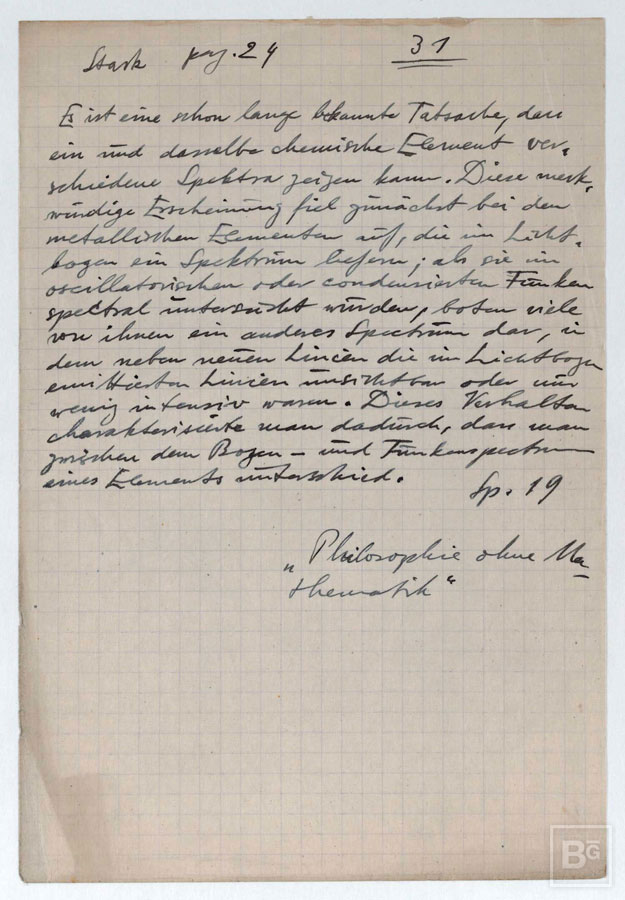 Stark pag. 24 31
Es ist eine schon lange bekannte Tatsache, dass
ein und dasselbe chemische Element ver-
schiedene Spektra zeigen kann. Diese merk-
würdige Erscheinung fiel zunächst bei den
metallischen Elementen auf, die im Licht-
bogen ein Spektrum liefern; als sie im
oscillatorischen oder condensierten Funken
spectral untersucht wurden, boten viele
von ihnen ein anderes Spectrum dar, in
dem neben neuen Linien die im Lichtbogen
emittierten Linien unsichtbar oder nur
wenig intensiv waren. Dieses Verhalten
charakterisierte man dadurch, dass man
zwischen dem Bogen- und Funkenspectrum
eines Elements unterschied.
Sp. 19
„Philosophie ohne Ma-
thematik“
BG